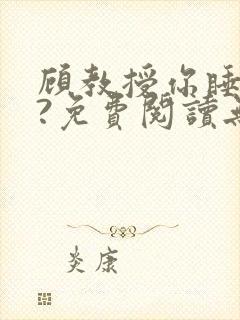 顾教授你睡
?免費閱讀
炎康